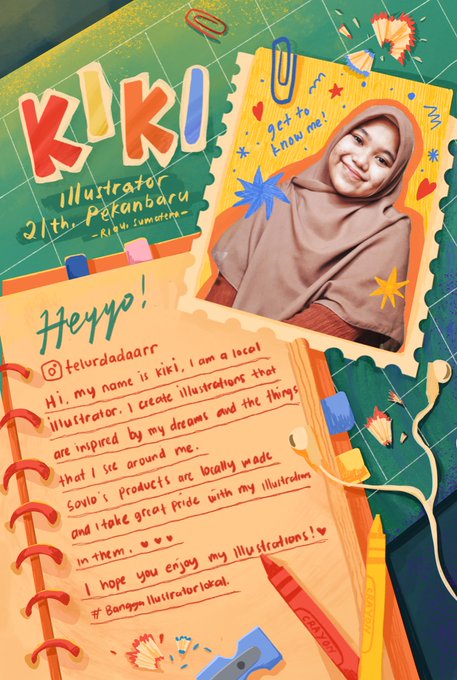 KIKI
Illustrator
21th, Pekanbaru
- Riau, Sumatera -
get to
know me!
Heyyo!
telurdadaarr
Hi, my name is kiki, I am a local
illustrator. I create illustrations that
are inspired by my dreams and the things
that I see around me.
Sovlo's products are locally made
and I take great pride with my illustration
in them. ♥ ♥ ♥
I hope you enjoy my illustrations! ♥
# Bangga Ilustrator lokal.
CRAYON
CRAYON